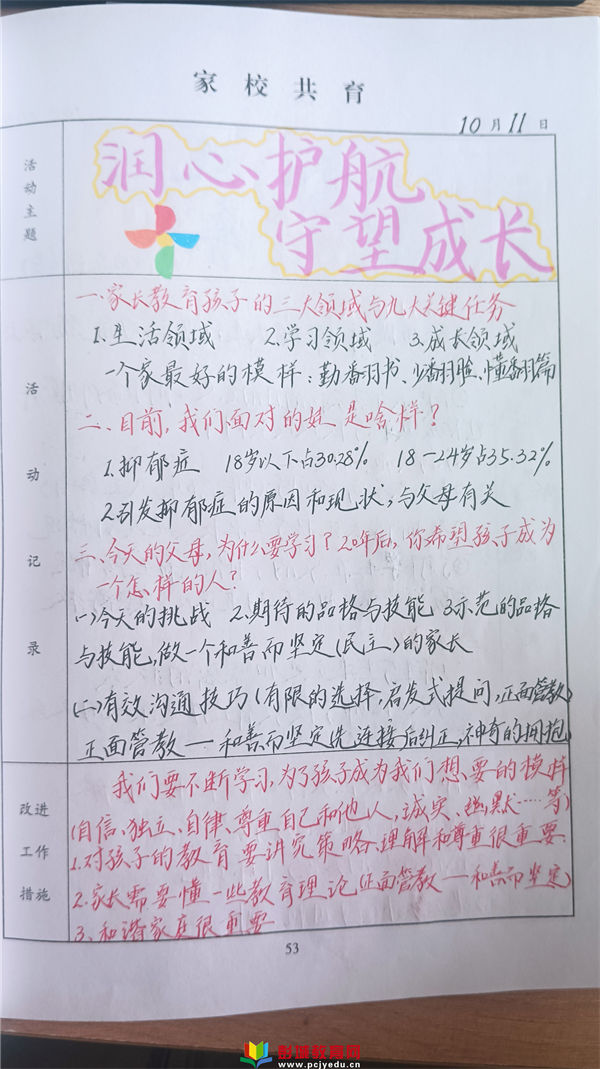 家校共育
10月11日
活动主题
润心护航
守望成长
活动记录
一.家长教育孩子的三大领域与九大关键任务
1.生活领域 2.学习领域 3.成长领域
一个家最好的模样:勤番羽书、少番羽脸、懂番羽篇
二、目前,我们面对的娃是啥样?
1.抑郁症 18岁以下占30.28% 18-24岁占35.32%
2.引发抑郁症的原因和现状,与父母有关
三、今天的父母,为什么要学习?20年后,你希望孩子成为
一个怎样的人?
(一)今天的挑战 2.期待的品格与技能 3示范的品格
与技能,做一个和善而坚定(民主)的家长
(二)有效沟通技巧(有限的选择,启发式提问,正面管教)
正面管教——和善而坚定先连接后纠正,神奇的拥抱。
改进工作措施
我们要不断学习,为了孩子成为我们想要的模样
(自信、独立、自律、尊重自己和他人,诚实、幽默……等)
1.对孩子的教育要讲究策略、理解和尊重很重要.
2.家长需要懂一些教育理论(正面管教——和善而坚定)
3、和谐家庭很重要
53
彭城教育网
www.pcjyedu.cn